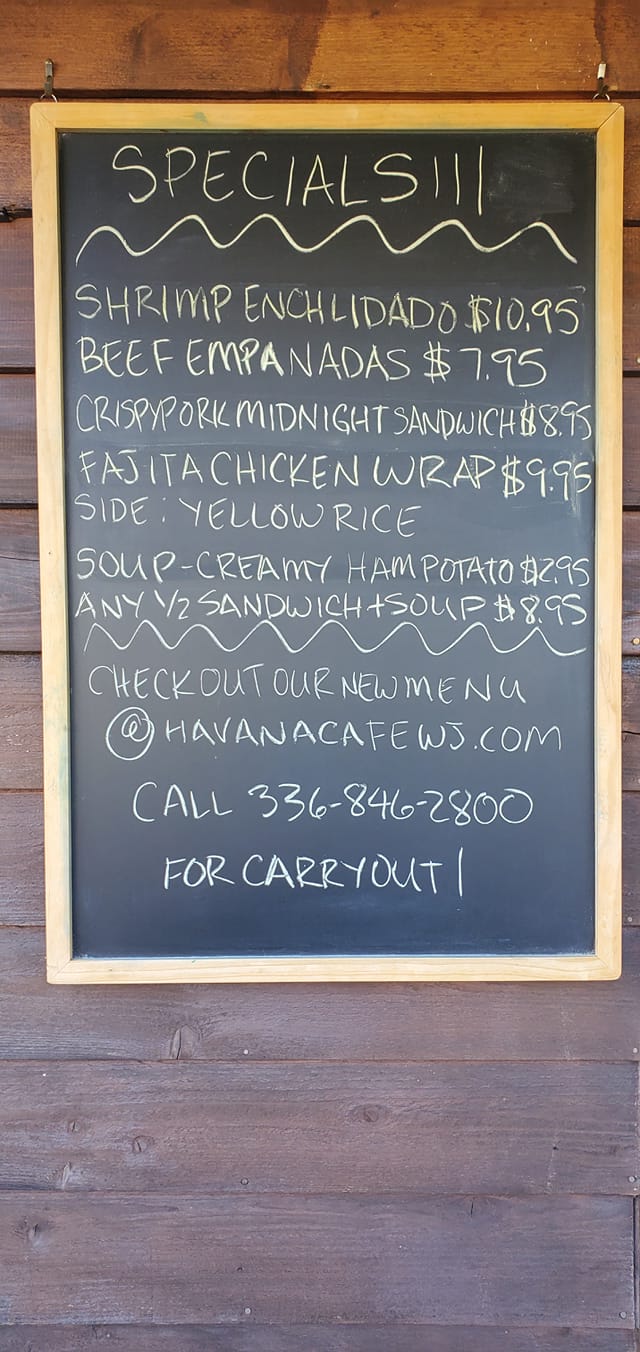 SPECIALS!!!
SHRIMP ENCHLIDADO $10.95
BEEF EMPANADAS $7.95
CRISPY PORK MIDNIGHT SANDWICH $8.95
FAJITA CHICKEN WRAP $9.95
SIDE: YELLOW RICE
SOUP-CREAMY HAM POTATO $2.95
ANY 1/2 SANDWICH + SOUP $8.95
CHECK OUT OUR NEW MENU
@ HAVANACAFEWJ.COM
CALL 336-846-2800
FOR CARRYOUT!